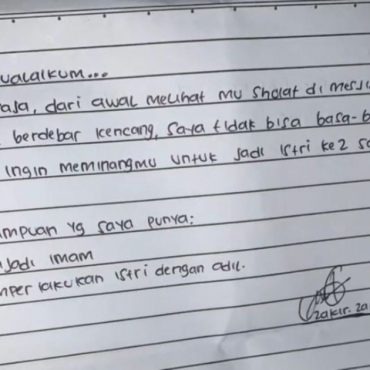 ualaikum...
aja, dari awal melihat mu sholat di mesji
berdebar kencang, saya tidak bisa basa-b
ingin meminangmu untuk jadi istri ke2 sa
mpuan yg saya punya:
jadi imam
mperlakukan istri dengan adil.
zakir.za